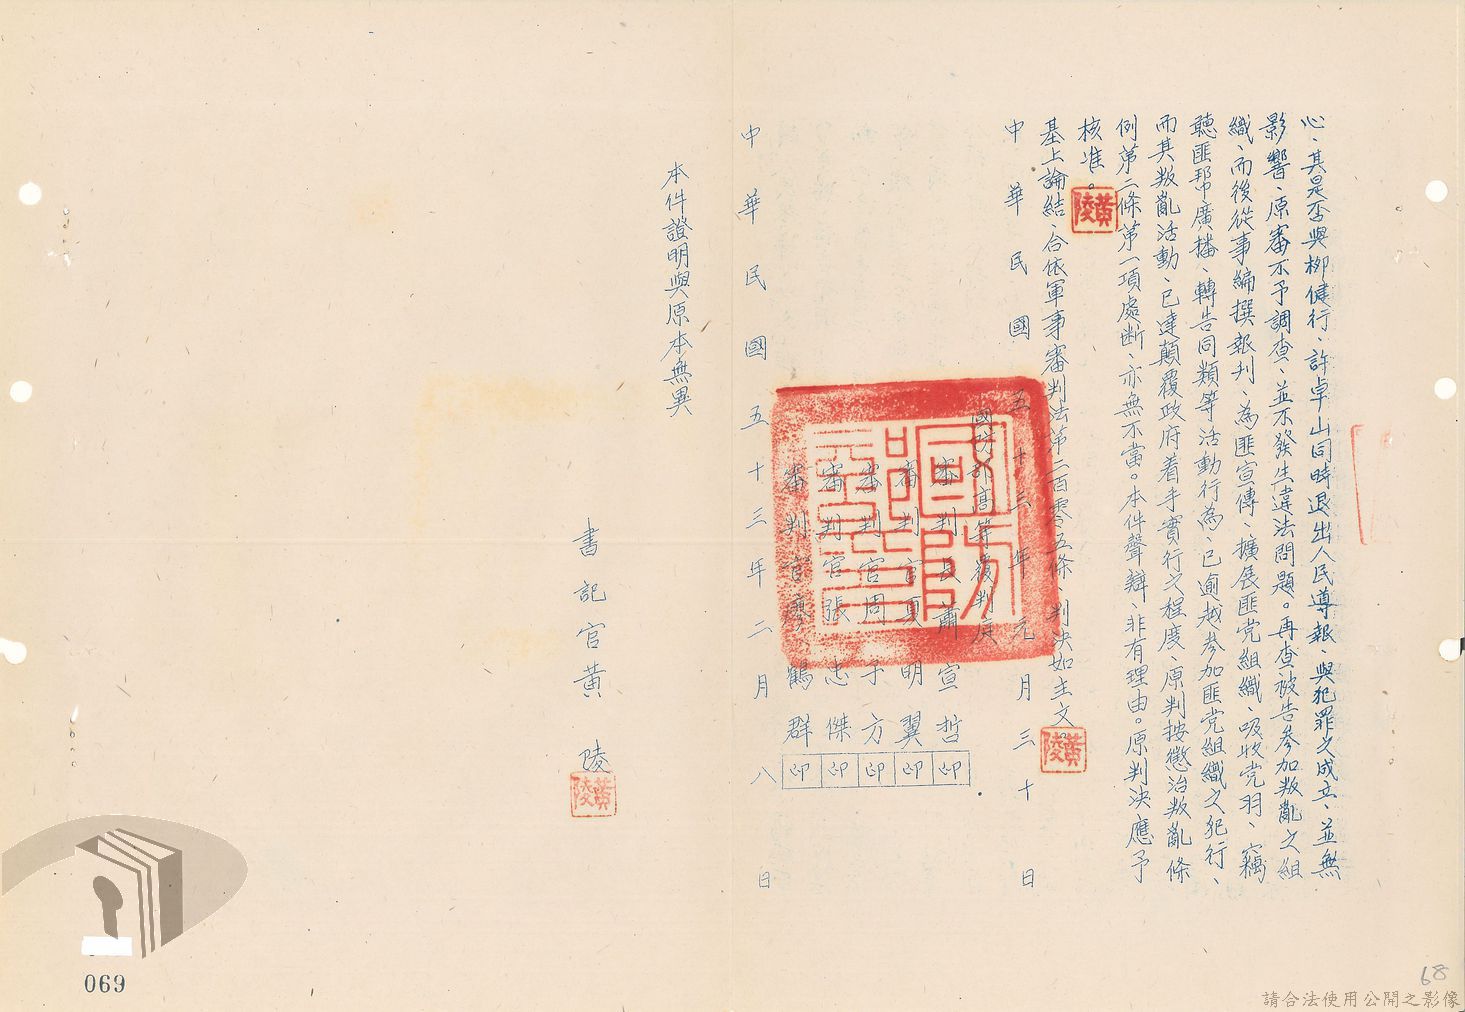 心、其是否與柳健行、許卓山同時退出人民導報、與犯罪之成立、並無
影響、原審不予調查、並不發生違法問題。再查被告參加叛亂之組
織、而後從事編撰報刊、為匪宣傳、擴展匪党組織、吸收党羽、竊
聽匪幫廣播、轉告同類等活動行為、已逾越參加匪党組織之犯行、
而其叛亂活動、已達顛覆政府着手實行之程度、原判按懲治叛亂條
例第二條第一項處断、亦無不當。本件聲辯、非有理由。原判決應予
核准。
基上論結、合依軍事審判法第二百零五條、判決如主文。
中華民國五十三年元月三十日
國防部高等覆判庭
審判長蕭宣哲印
審判官夏明翼印
審判官周子方印
審判官張志傑印
審判官廖鶴群印
中華民國五十三年二月八日
本件證明與原本無異
書記官黃陵
黃陵
黃陵
黃陵
069
68
請合法使用公開之影像